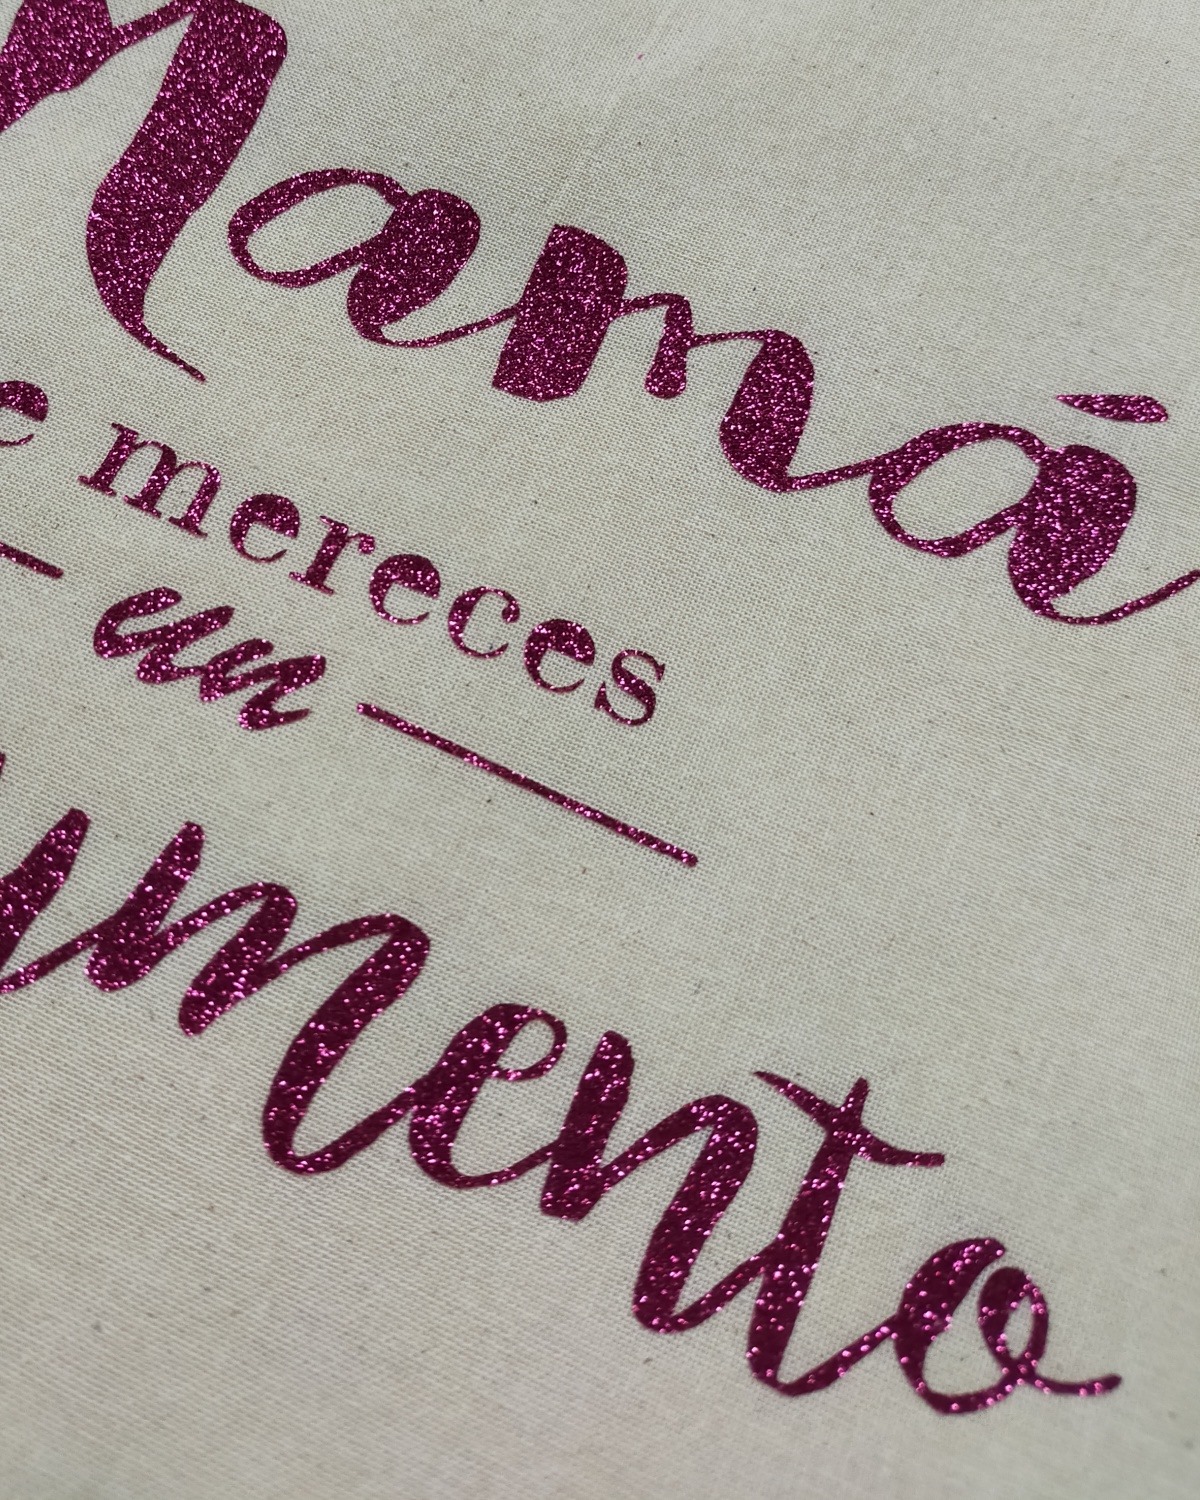 Mamá
e mereces
un
umento